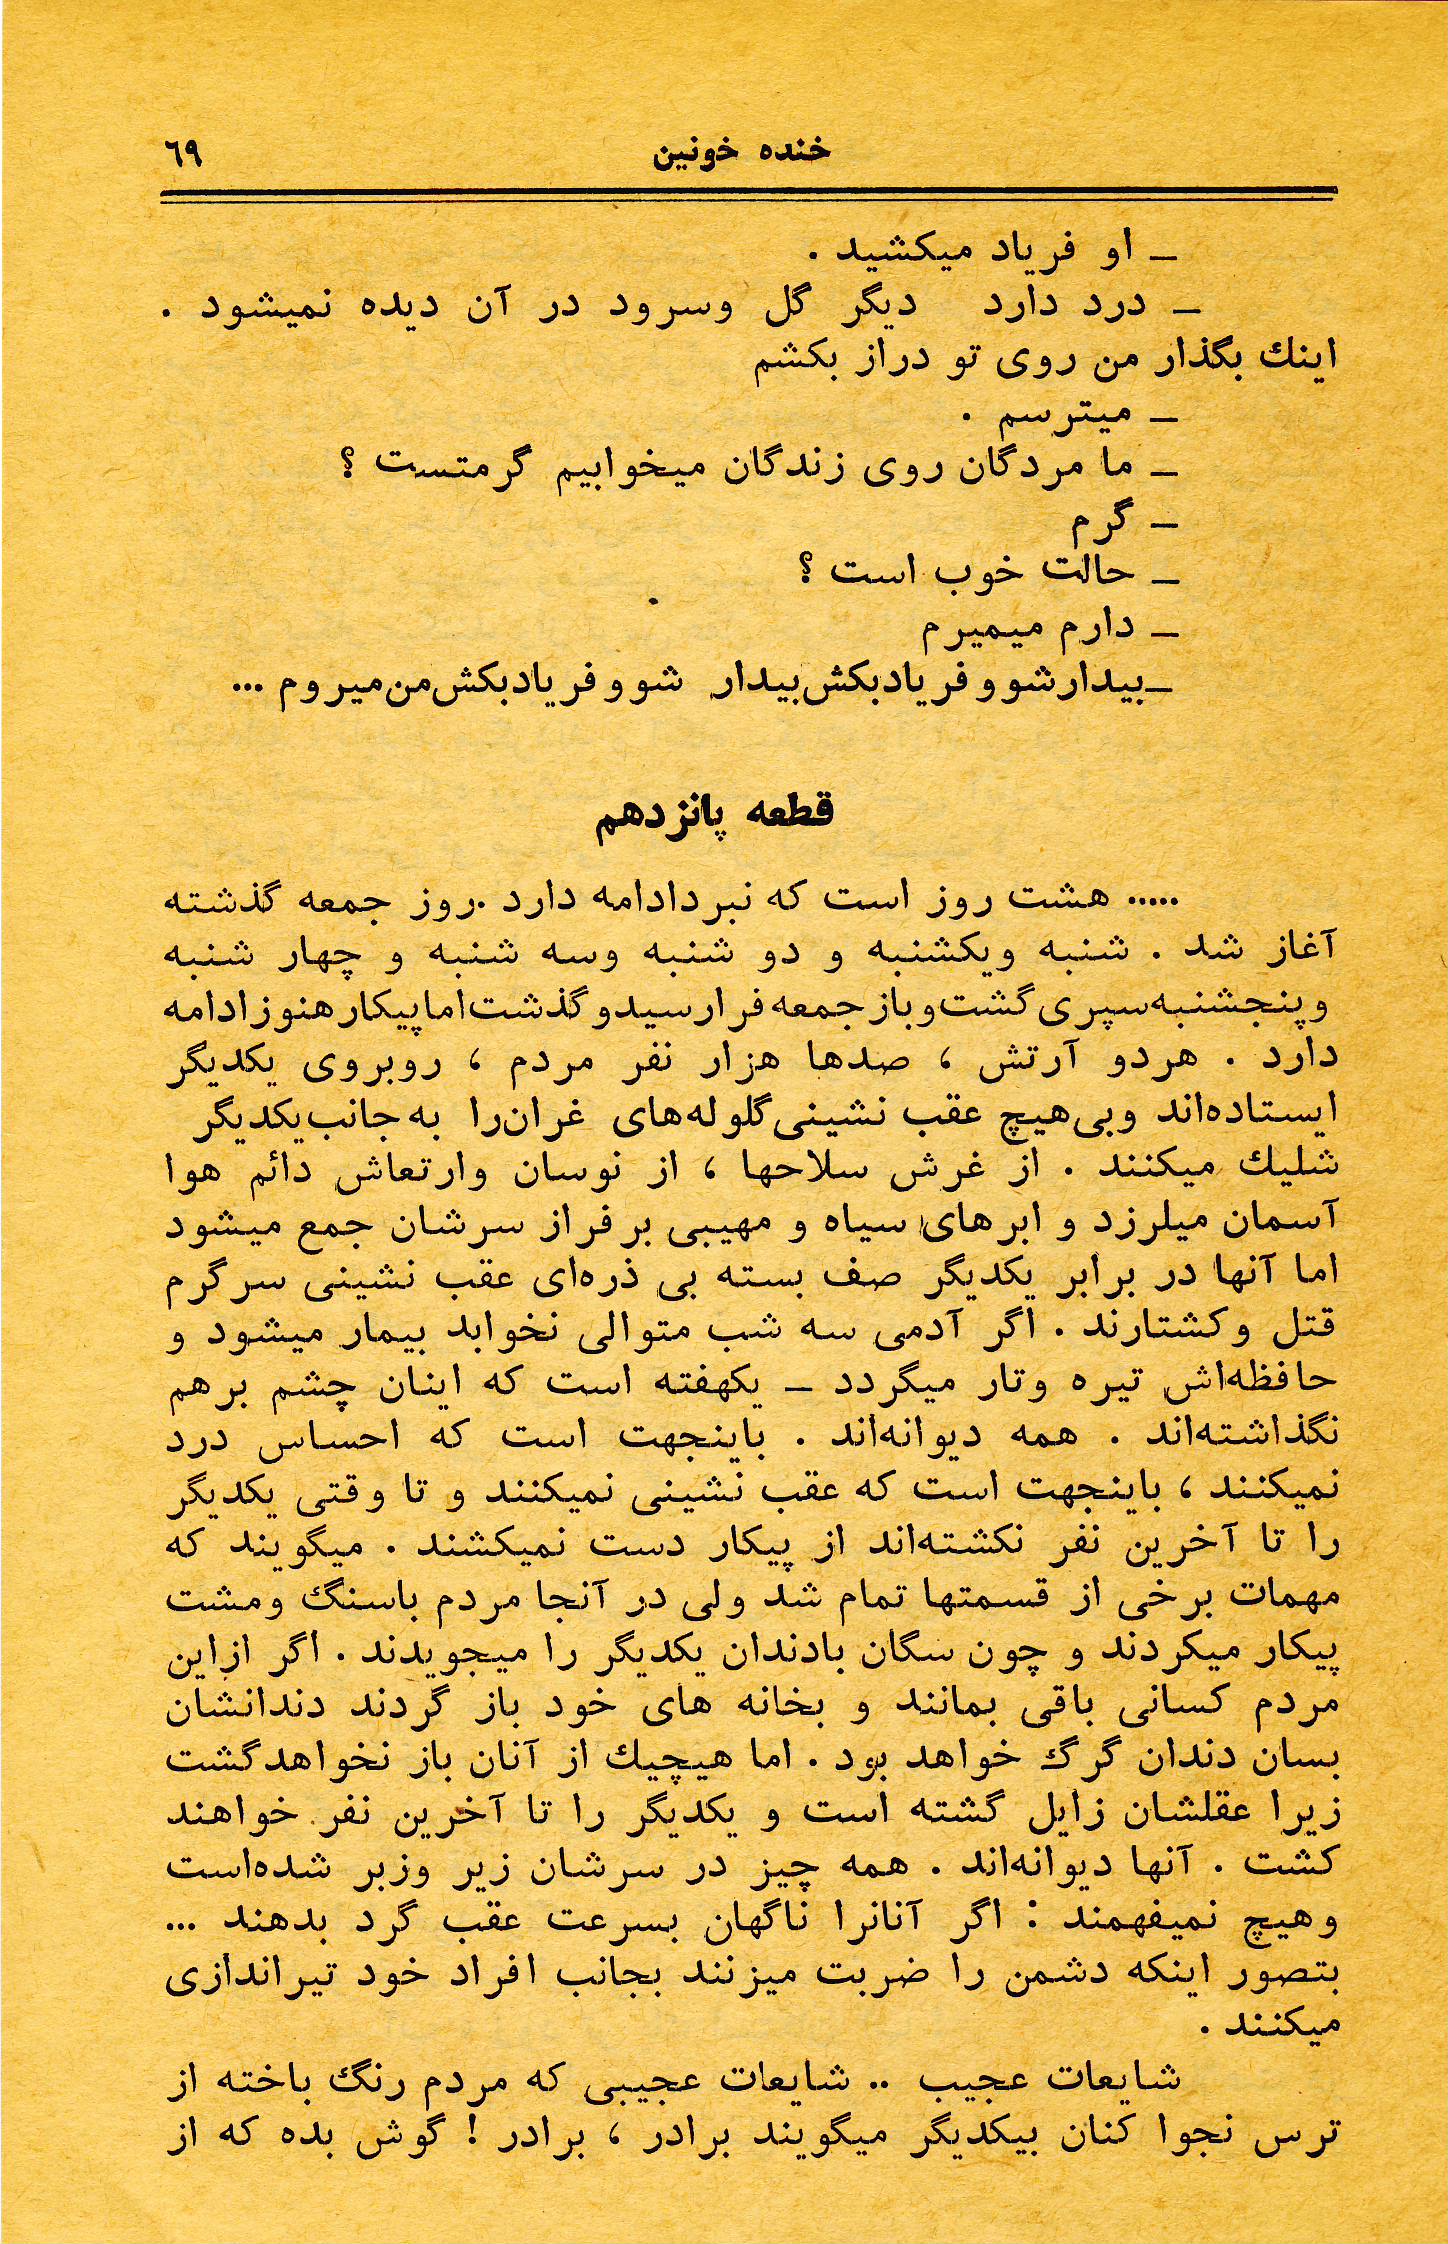 خنده خونین
٦٩
ـ او فریاد میکشید .
ـ درد دارد دیگر گل وسرود در آن دیده نمیشود .
اینك بگذار من روی تو دراز بکشم
ـ میترسم .
ـ ما مردگان روی زندگان میخوابیم گرمتست ؟
ـ گرم
ـ حالت خوب است ؟
ـ دارم میمیرم
ـ بیدارشو و فریادبکش بیدار شو و فریادبکش من میروم ...
قطعه پانزدهم
..... هشت روز است که نبردادامه دارد .روز جمعه گذشته
آغاز شد . شنبه ویکشنبه و دو شنبه وسه شنبه و چهار شنبه
وپنجشنبه سپری گشت وباز جمعه فرارسید و گذشت اما پیکار هنوز ادامه
دارد . هردو آرتش ، صدها هزار نفر مردم ، روبروی یکدیگر
ایستاده‌اند وبی‌هیچ عقب نشینی گلوله‌های غران‌را به جانب یکدیگر
شلیك میکنند . از غرش سلاحها ، از نوسان وارتعاش دائم هوا
آسمان میلرزد و ابرهای سیاه و مهیبی بر فراز سرشان جمع میشود
اما آنها در برابر یکدیگر صف بسته بی ذره‌ای عقب نشینی سرگرم
قتل وکشتارند . اگر آدمی سه شب متوالی نخوابد بیمار میشود و
حافظه‌اش تیره وتار میگردد ـ یکهفته است که اینان چشم برهم
نگذاشته‌اند . همه دیوانه‌اند . باینجهت است که احساس درد
نمیکنند ، باینجهت است که عقب نشینی نمیکنند و تا وقتی یکدیگر
را تا آخرین نفر نکشته‌اند از پیکار دست نمیکشند . میگویند که
مهمات برخی از قسمتها تمام شد ولی در آنجا مردم باسنگ ومشت
پیکار میکردند و چون سگان بادندان یکدیگر را میجویدند . اگر ازاین
مردم کسانی باقی بمانند و بخانه های خود باز گردند دندانشان
بسان دندان گرگ خواهد بود . اما هیچیك از آنان باز نخواهدگشت
زیرا عقلشان زایل گشته است و یکدیگر را تا آخرین نفر خواهند
کشت . آنها دیوانه‌اند . همه چیز در سرشان زیر وزبر شده‌است
وهیچ نمیفهمند : اگر آنانرا ناگهان بسرعت عقب گرد بدهند ...
بتصور اینکه دشمن را ضربت میزنند بجانب افراد خود تیراندازی
میکنند .
شایعات عجیب .. شایعات عجیبی که مردم رنگ باخته از
ترس نجوا کنان بیکدیگر میگویند برادر ، برادر ! گوش بده که از